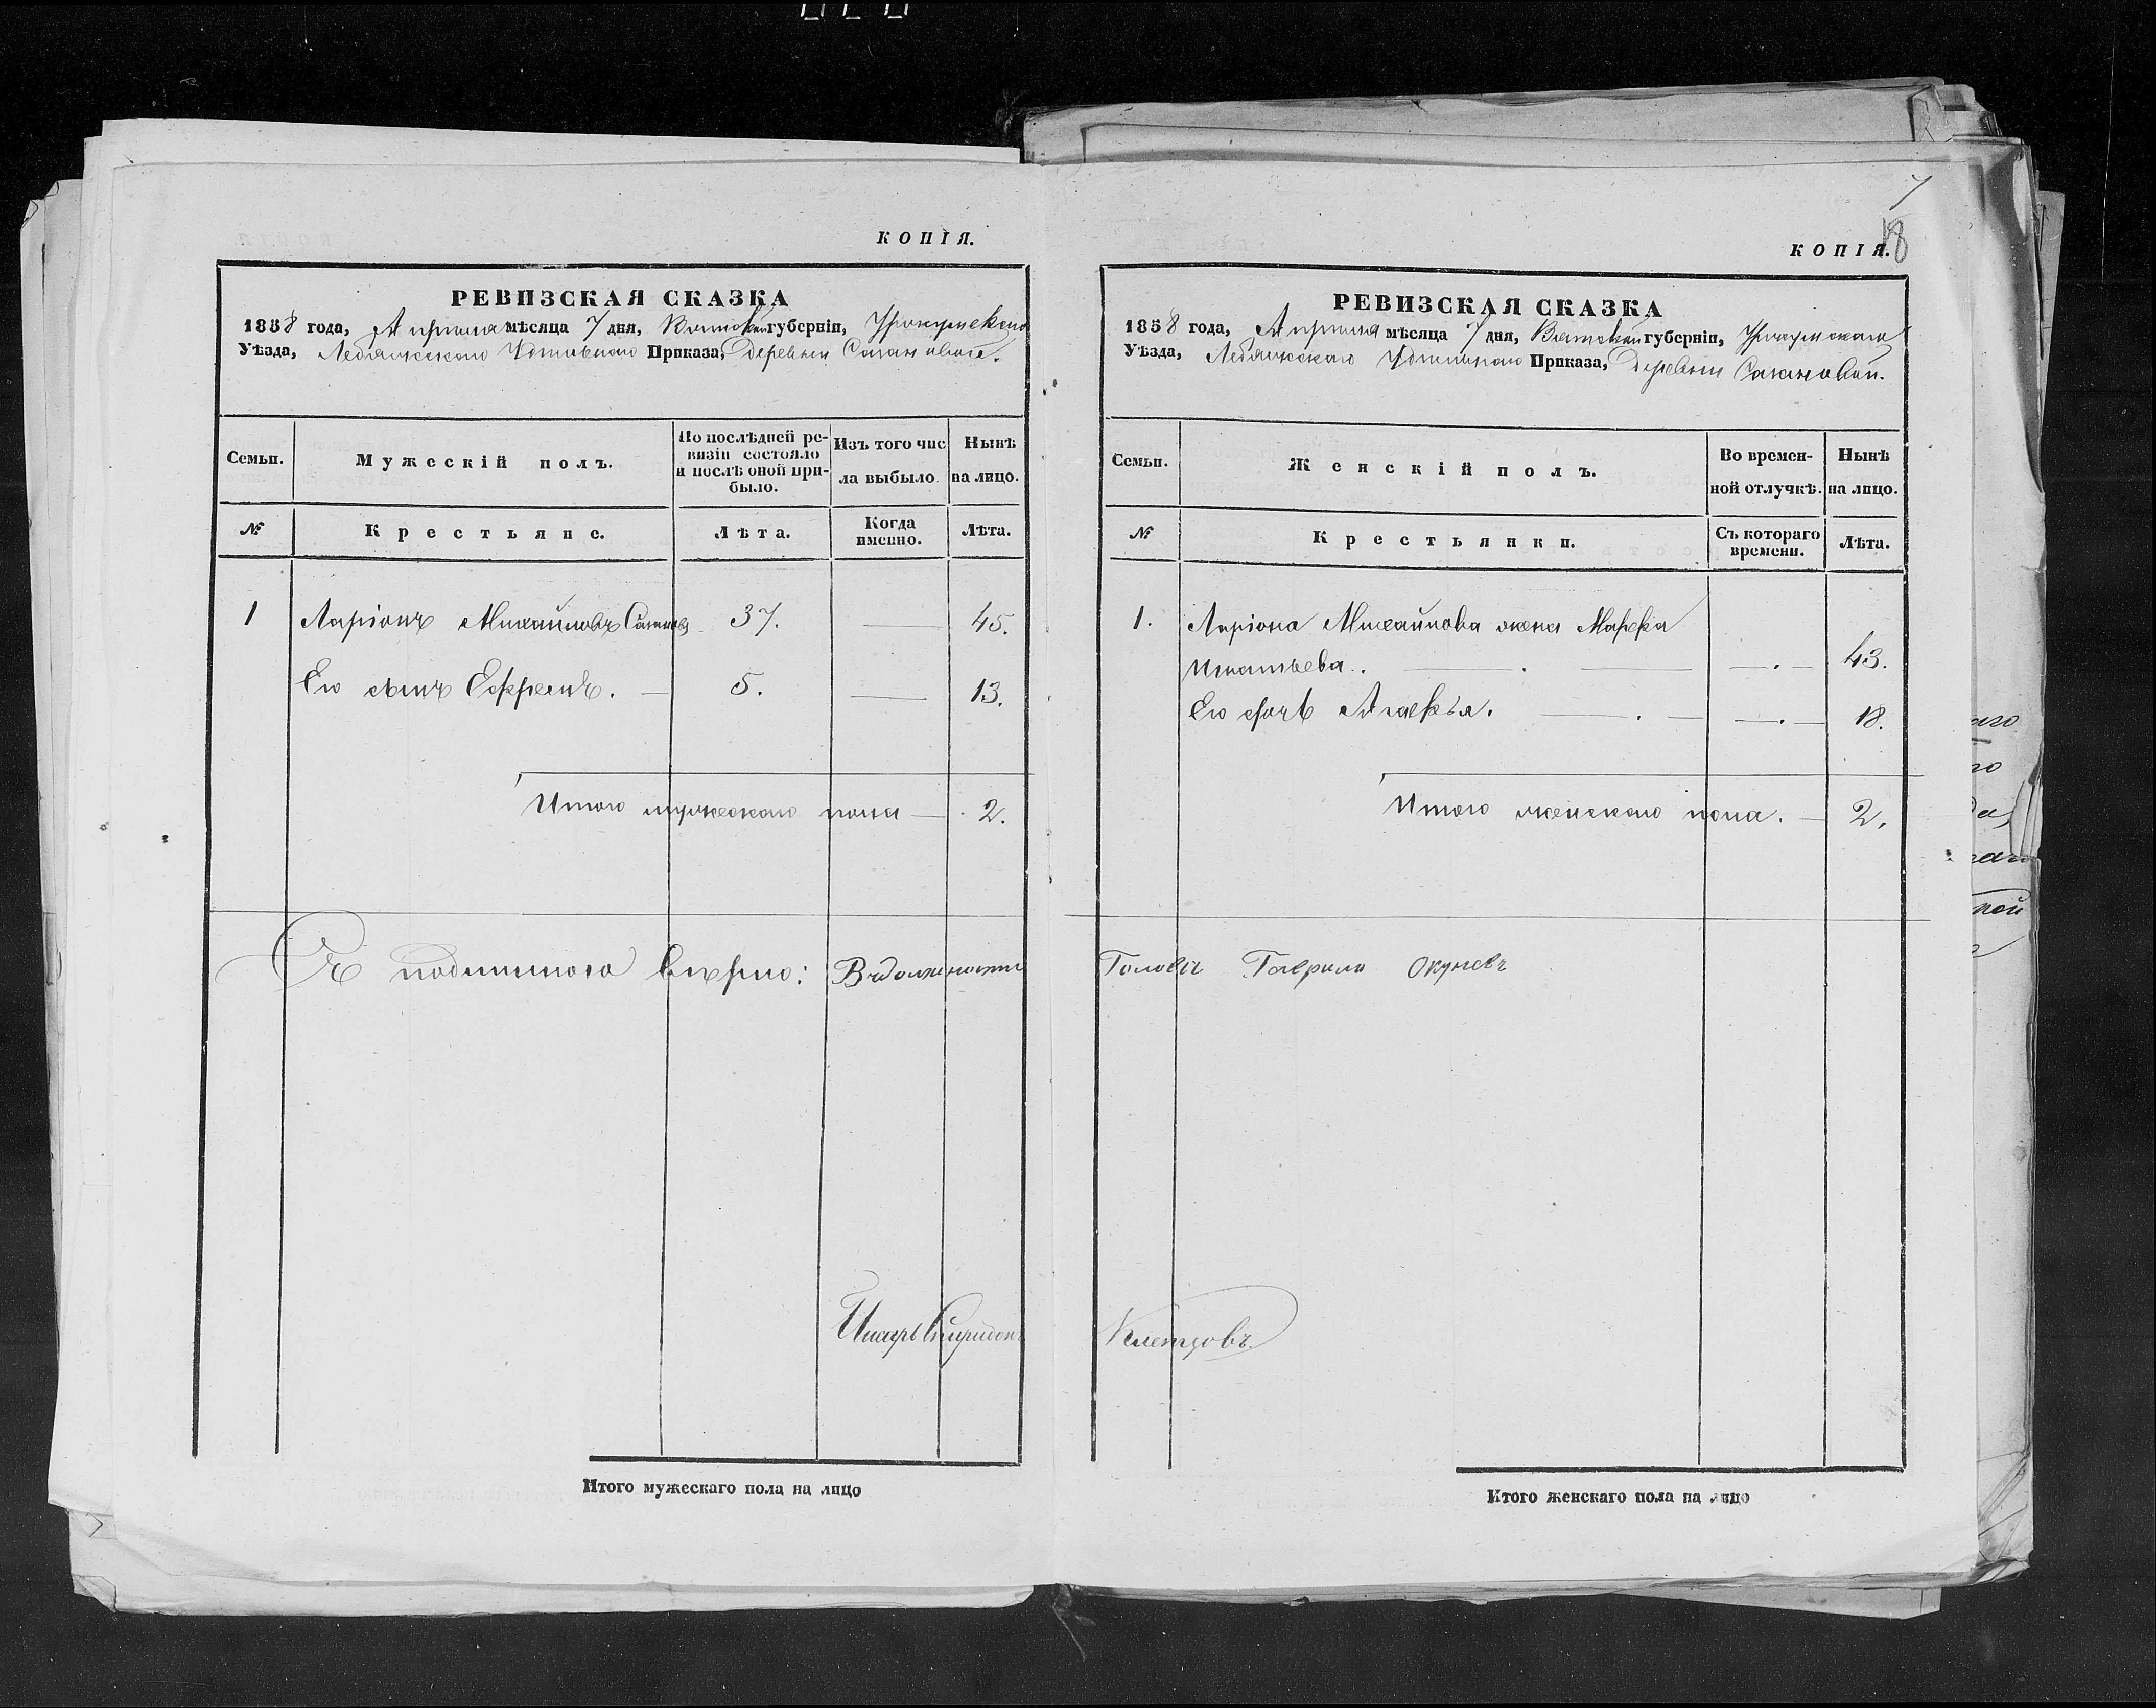 КОПІЯ.
РЕВИЗСКАЯ СКАЗКА
1858 года, Апрѣля мѣсяца 7 дня, Вятской губерніи, Уржумскаго
Уѣзда, Лебяжскаго Удѣльнаго Приказа, деревни Сагановой.
Семьи.
Мужескій полъ.
По послѣдней ре-
визіи состояло
и послѣ оной при-
было.
Изъ того чис
ла выбыло
Нынѣ
на лицо.
№
Крестьяне.
Лѣта.
Когда
именно.
Лѣта.
1 Ларіонъ Михайловъ Сагановъ 37. 45.
Его сынъ Ефремъ. 5. 13.
Итого мужескаго пола 2.
Съ подлиннымъ вѣрно: Въ должности
Писарь Спиридонъ
Итого мужескаго пола на лицо
7
18
КОПІЯ.
РЕВИЗСКАЯ СКАЗКА
1858 года, Апрѣля мѣсяца 7 дня, Вятской губерніи, Уржумскаго
Уѣзда, Лебяжскаго Удѣльнаго Приказа, деревни Сагановой.
Семьи.
Женскій полъ.
Во времен-
ной отлучкѣ.
Нынѣ
на лицо.
№
Крестьянки.
Съ котораго
времени.
Лѣта.
1. Ларіона Михайлова жена Марфа
Игнатьева. 43.
Его дочь Агафья. 18.
Итого женскаго пола. 2.
Головы Гаврило Окуневъ
Клетцовъ.
Итого женскаго пола на лицо